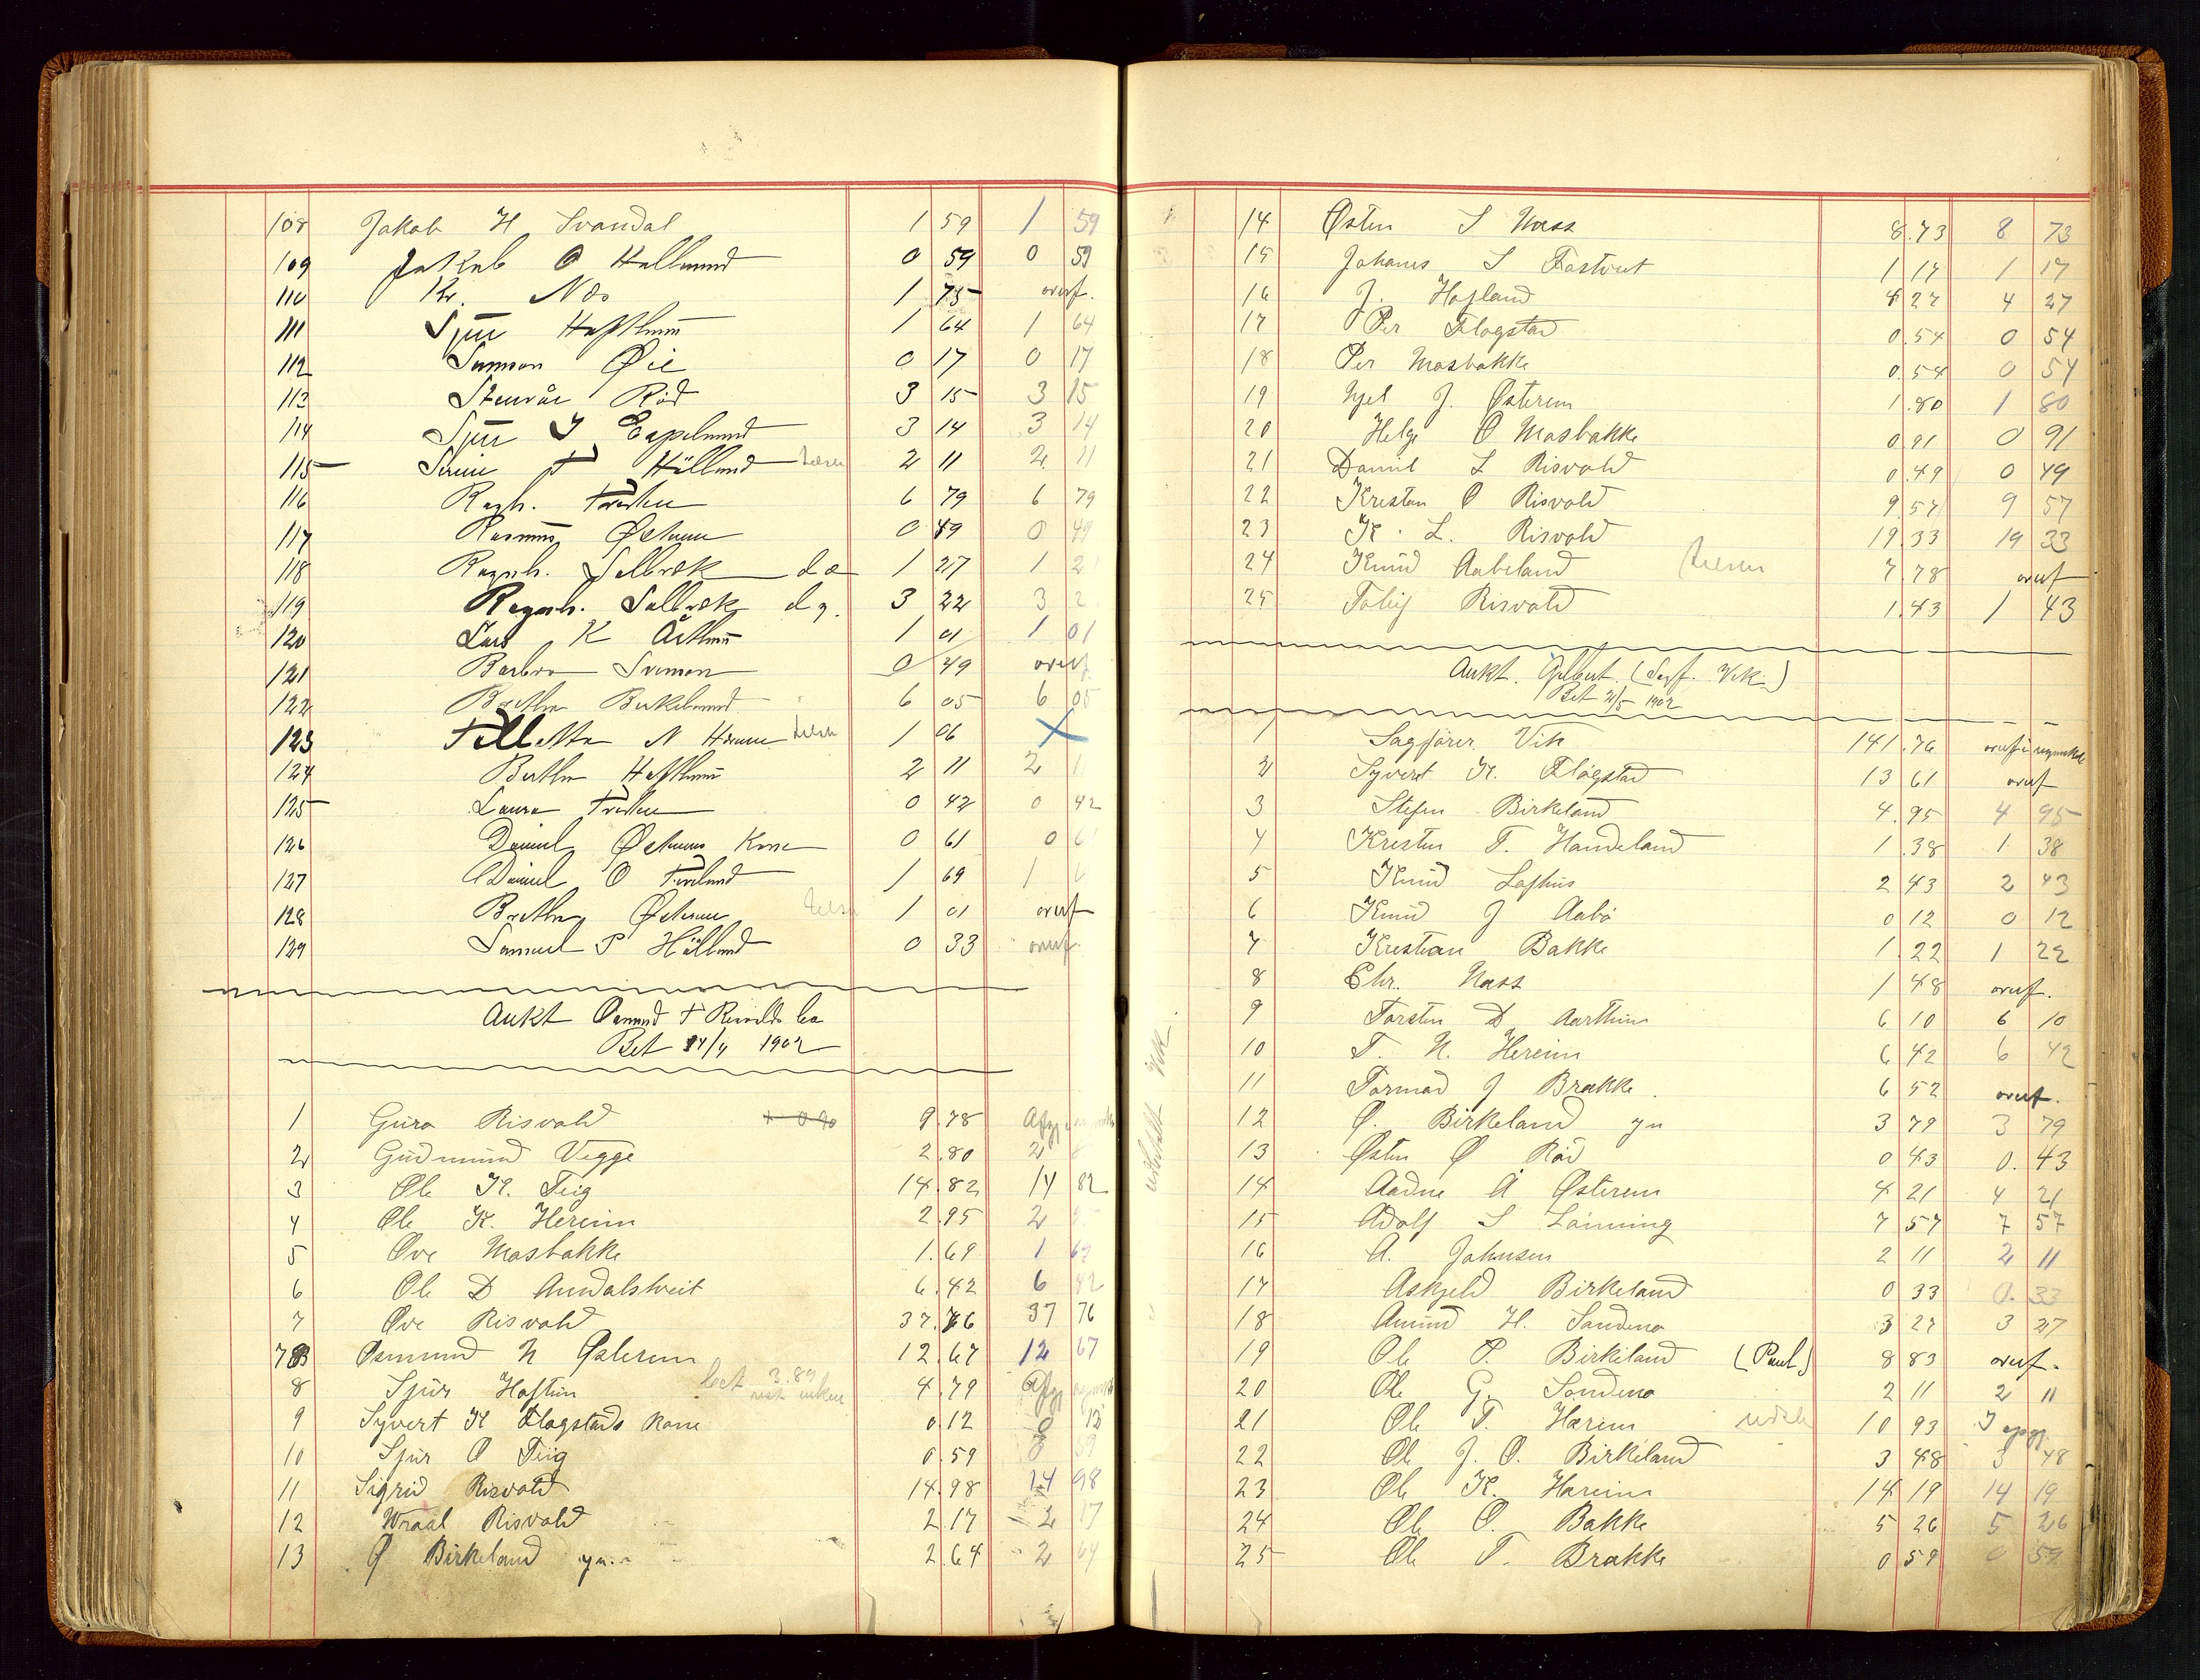 108 Jakob H Svandal 1 59 1 59
109 Jakob O Halleland 0 59 0 59
110 Kr. Næs 1 75 overf.
111 Sjur Hafthun 1 64 1 64
112 Samson Øie 0 17 0 17
113 Stenvår Röd 3 15 3 15
114 Sjur J Espeland 3 14 3 14
115 T Hålland 2 11 2 11
116 Ragh. 6 79 6 79
117 Rasmus Østrem 0 49 0 49
118 Ragnh. Sellvæk d æ 1 27 1 2
119 Ragnh. Sellvæk d y. 3 22 3 2
120 Lars K Årthun 1 01 1 01
121 Barbro Svensen 0 49 overf
122 Birkeland 6 05 6 05
123 N 1 06 X
124 Bertha Hafthun 2 11 2 1
125 Laura 0 42 0 42
126 Daniel Østrems Kone 0 61 0 6
127 Daniel O 1 69 1 6
128 Berthe Østrem 1 01 overf
129 Samuel P Hålland 0 33 overf.
Aukt Osmund T Risvolds bo
Bet 24/4 1902
1 Guro Risvold 9.78
2 Gudmund Vegge 2.80 2
3 Ole K. Teig 14.82 14 82
4 Ole K. Hereim 2.95 2
5 Ove Masbakke 1.69 1 69
6 Ole D Amdalstveit 6.42 6 42
7 Ove Risvold 37.76 37 76
7B Osmund N Østerem 12.67 12 67
8 Sjur Haftun bet 3.89 4.79
9 Syvert K Flogstads Kone 0.12 0 12
10 Sjur O Teig 0.59 0 59
11 Sigrid Risvold 14.98 14 98
12 Wraal Risvold 2.17 2 17
13 O Birkeland yn. 2.64 2 64
14 Østen S Næss 8.73 8 73
15 Johanes S Fastveit 1 17 1 17
16 J. Hofland 4 27 4 27
17 Per Flogstad 0.54 0 54
18 Per Masbakke 0.54 0 54
19 Njel J. Østerem 1.80 1 80
20 Helge O Masbakke 0.91 0 91
21 Daniel L Risvold 0.49 0 49
22 Kresten O Risvold 9 57 9 57
23 K. L. Risvold 19.33 19 33
24 Knud Aabeland 7.78 overf
25 Tobij Risvold 1.43 1 43
Aukt. Gilbert. (Sagf. Vik.)
Bet 2/5 1902
1 Sagförer Vik 141.76
2 Syvert K. Flogstad 13 61 overf
3 Stefen Birkeland 4.95 4 95
4 Kresten T. Handeland 1.38 1 38
5 Knud Lofthus 2 43 2 43
6 Knud J Aabö 0 12 0 12
7 Krestian Bakke 1.22 1 22
8 Chr. Næss 1 48 overf.
9 Torsten D Aarthun 6 10 6 10
10 T. N. Hereim 6 42 6 42
11 Tormod J Brakke. 6 52 overf.
12 O. Birkeland yn 3 79 3 79
13 Østen Ø Röd 0 43 0. 43
14 Aadne Å Østerem 4 21 4 21
15 Adolf S Lönning 7 57 7 57
16 A. Johnsen 2 11 2 11
17 Askjeld Birkeland 0 33 0. 33
18 Amund H. Sandenø 3 27 3 27
19 Ole P. Birkeland (Paul) 8 83 overf.
20 Ole G. Sandenø 2 11 2 11
21 Ole T. Hærem 10 93
22 Ole J. O. Birkeland 3 48 3 48
23 Ole K. Hareim 14 19 14 19
24 Ole O. Bakke 5 26 5 26
25 Ole T. Brakke 0 59 0 59